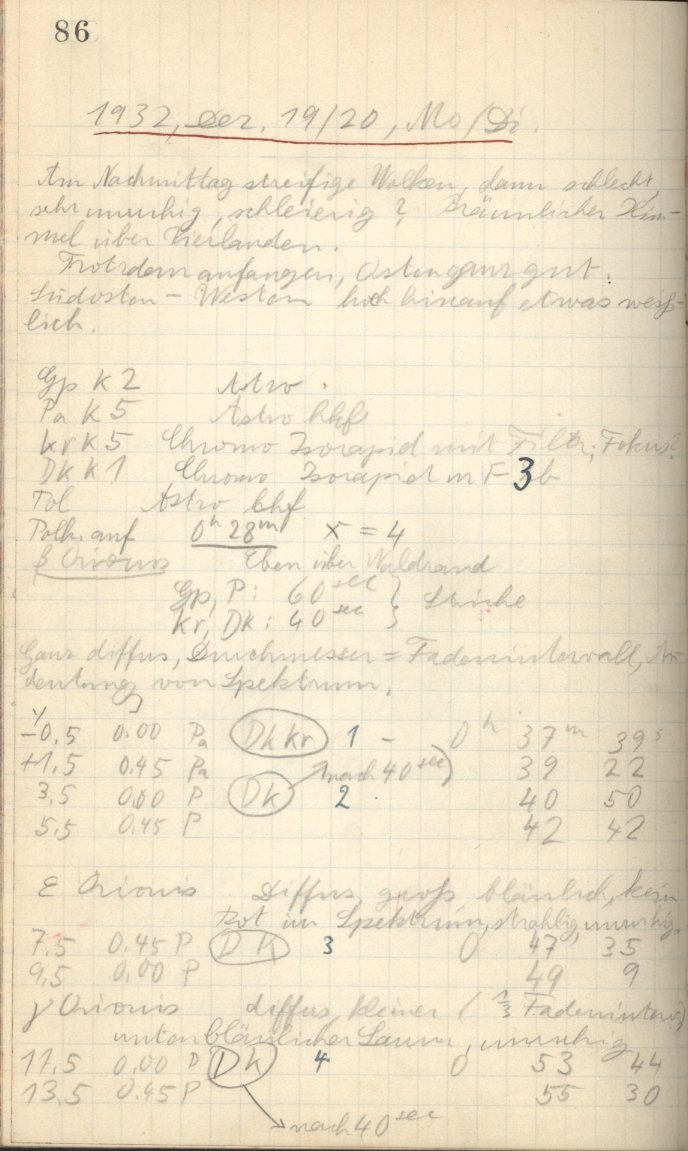 86
1932, Dez. 19/20, Mo/Di.
Am Nachmittag streifige Wolken, dann schlecht,
sehr unruhig, schleierig? Bräunlicher Him-
mel über Vierlanden.
Trotzdem anfangen, Osten ganz gut.
Südosten - Westen hoch hinauf etwas weiß-
lich.
Gp K2 Astro.
Pa K5 Astro hhf
Kr K5 Chromo Isorapid mit Filter, Fokus?
Dk K1 Chromo Isorapid m F 3b
Tol Astro hhf
Polh. auf 0h 28m x = 4
β Orionis Eben über Waldrand
Gp, P: 60 sec } Striche
Kr, Dk: 40 sec
Ganz diffus, Durchmesser = Fadenintervall, An-
deutung von Spektrum.
y
-0,5 0.00 Pa Dk Kr 1 - 0h 37m 39s
+1,5 0.45 Pa nach 40 sec) 39 22
3,5 0.00 P Dk 2 40 50
5,5 0.45 P 42 42
ε Orionis Diffus, groß, bläulich, kein
Rot im Spektrum, strahlig, unruhig
7,5 0.45 P DK 3 0 47 35
9,5 0.00 P 49 9
γ Orionis diffus, kleiner (1/3 Fadeninterv)
unten bläulicher Saum, unruhig
11,5 0.00 P DK 4 0 53 44
13,5 0.45 P 55 30
nach 40 sec